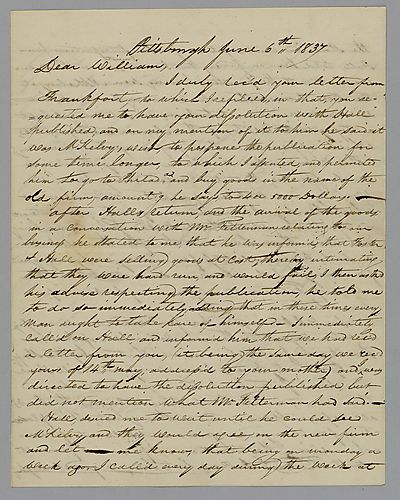 Pittsburgh June 6th 1837
Dear William,
I duly rec'd your letter from
Frankfort, to which I replied, in that, you re-
quested me to have your dissolution with Hall
published, and on my mention of it to him he said it
was McKelvy's wish to postpone the publication for
some time longer, to which I assented, and permitted
him to go to Philada and buy goods in the name of the
old firm, amount he says to be 5000 Dollars. —
After Hall's return, and the arrival of the goods
in a conversation with Mr Fetterman relating to our
business he stated to me that he was informed that Foster
& Hall were selling goods at Cost, thereby intimating
that they were hard run and would fail, I then asked
his advise respecting the publication, he told me
to do so immediately, adding that in these times every
man ought to take care of himself — I immediately
called on Hall and informed him that we had rec'd
a letter from you, (it being the same day we rec'd
yours of 14th May, addres'd to your mother) and was
directed to have the dissolution published but
did not mention what Mr Fetterman had said. —
Hall, desired me to wait until he could see
McKelvy and they would agree on the new firm
and let — me know, that being on monday a
week ago, I call'd every day during the week at